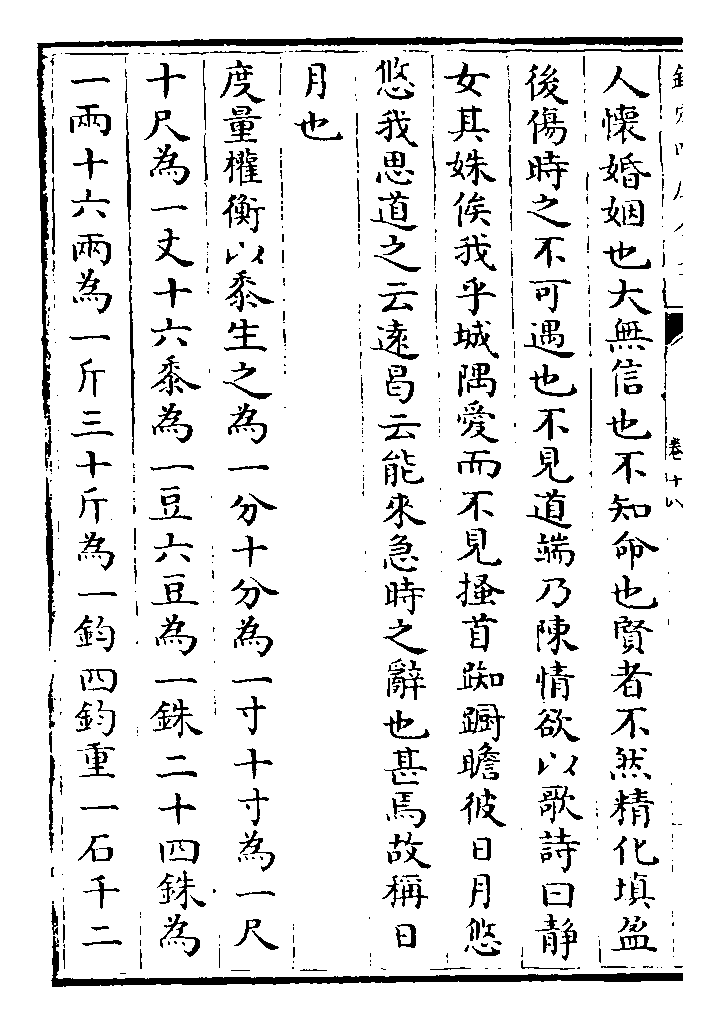 人懷婚姻也大無信也不知命也賢者不然精化填盈
後傷時之不可遇也不見道端乃陳情欲以歌詩曰静
女其姝俟我乎城隅愛而不見搔首踟蹰瞻彼日月悠
悠我思道之云遠曷云能來急時之辭也甚焉故稱日
月也
度量權衡以黍生之為一分十分為一寸十寸為一尺
十尺為一丈十六黍為一豆六豆為一銖二十四銖為
一兩十六兩為一斤三十斤為一鈞四鈞重一石千二
卷十八